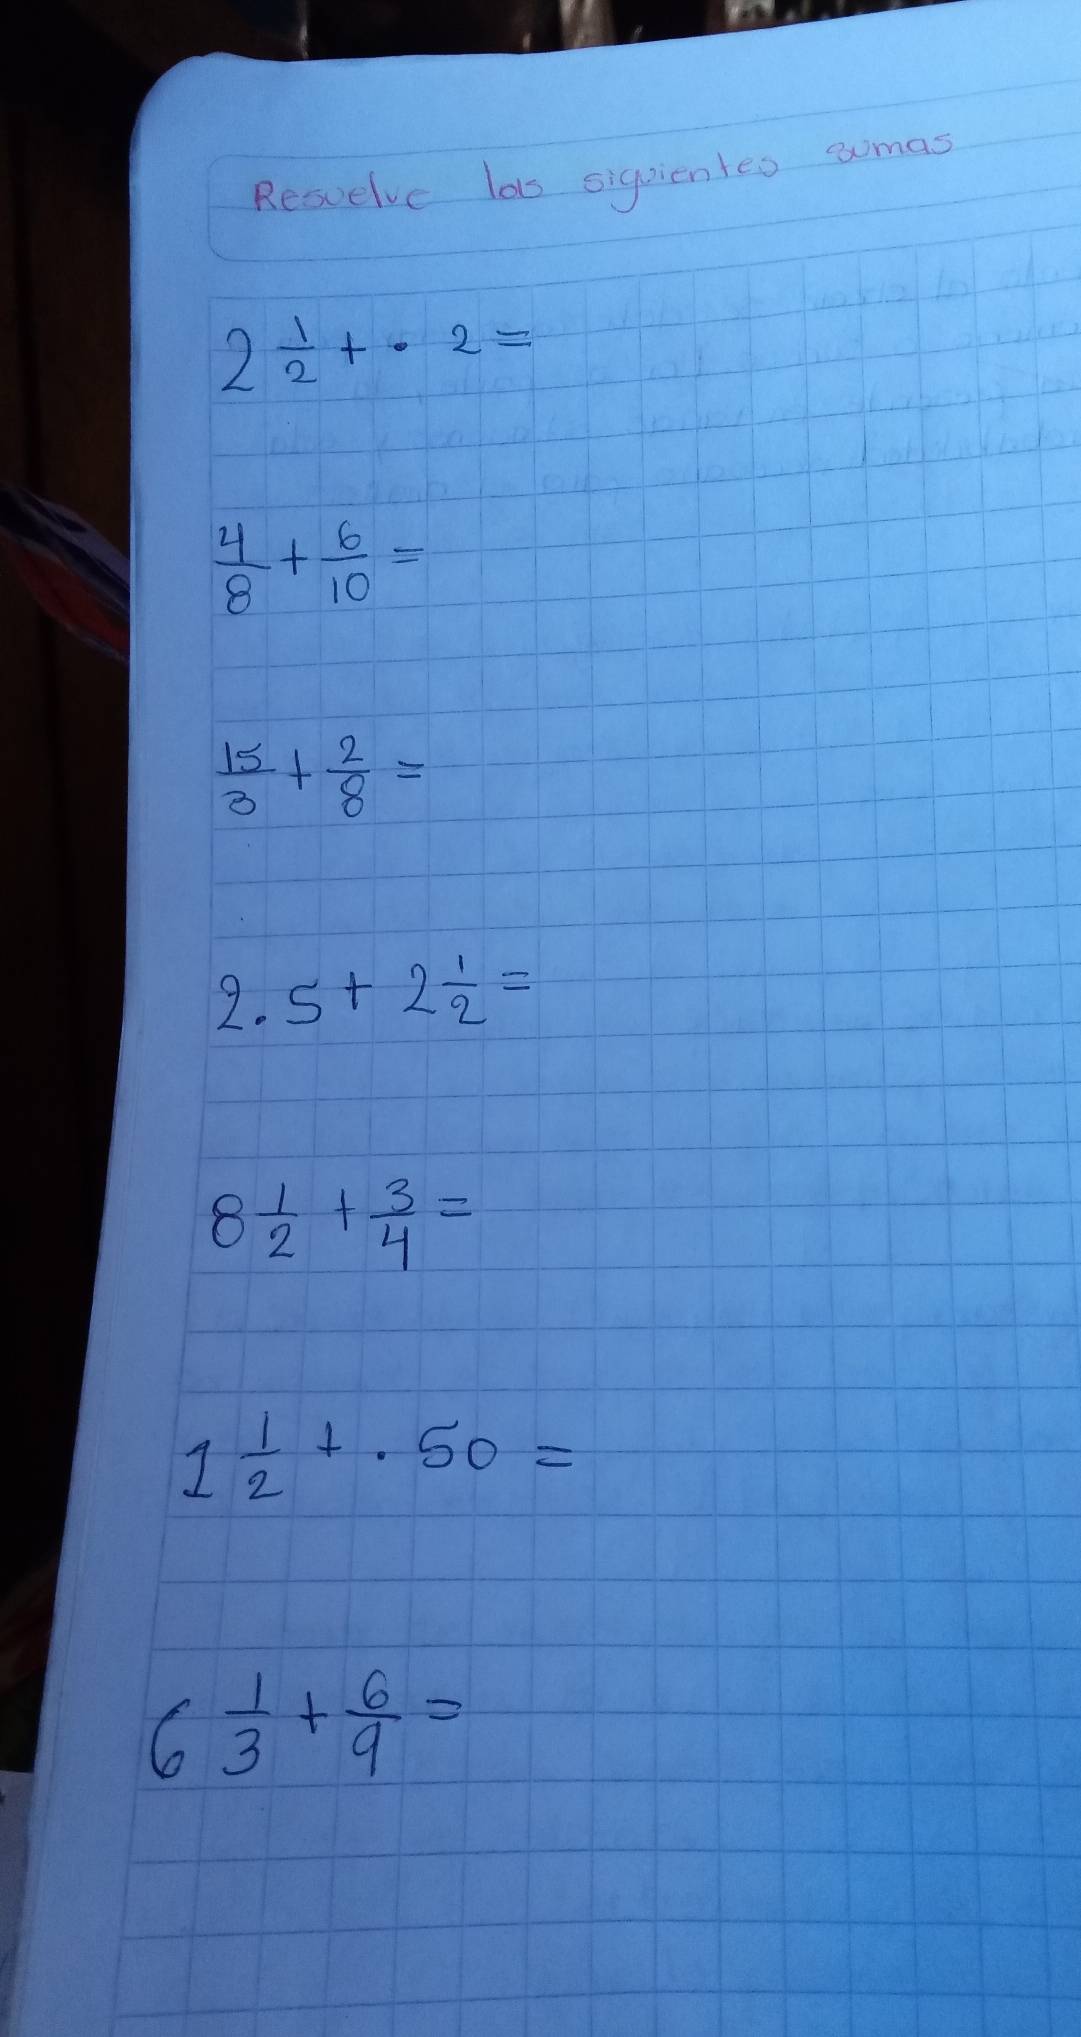 Resuelve las siguientes sumas
2 1/2 + . 2 =
4/8 + 6/10 =
15/3 + 2/8 =
2.5 + 2 1/2 =
8 1/2 + 3/4 =
1 1/2 + .50 =
6 1/3 + 6/9 =